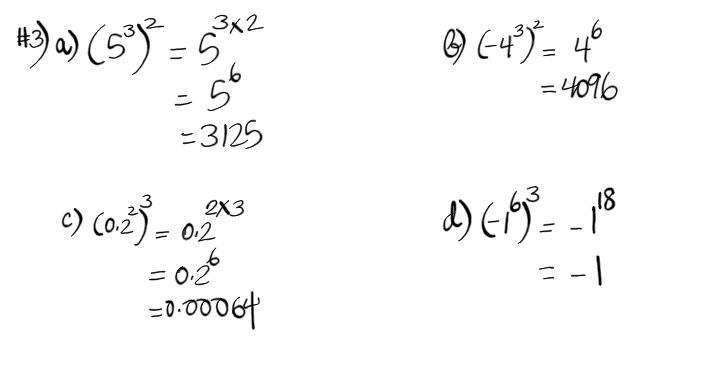 #3) a) (5³)² = 5³ˣ²
= 5⁶
= 3125
b) (-4³)² = 4⁶
= 4096
c) (0.2²)³ = 0.2²ˣ³
= 0.2⁶
= 0.00064
d) (-1⁶)³ = -1¹⁸
= -1